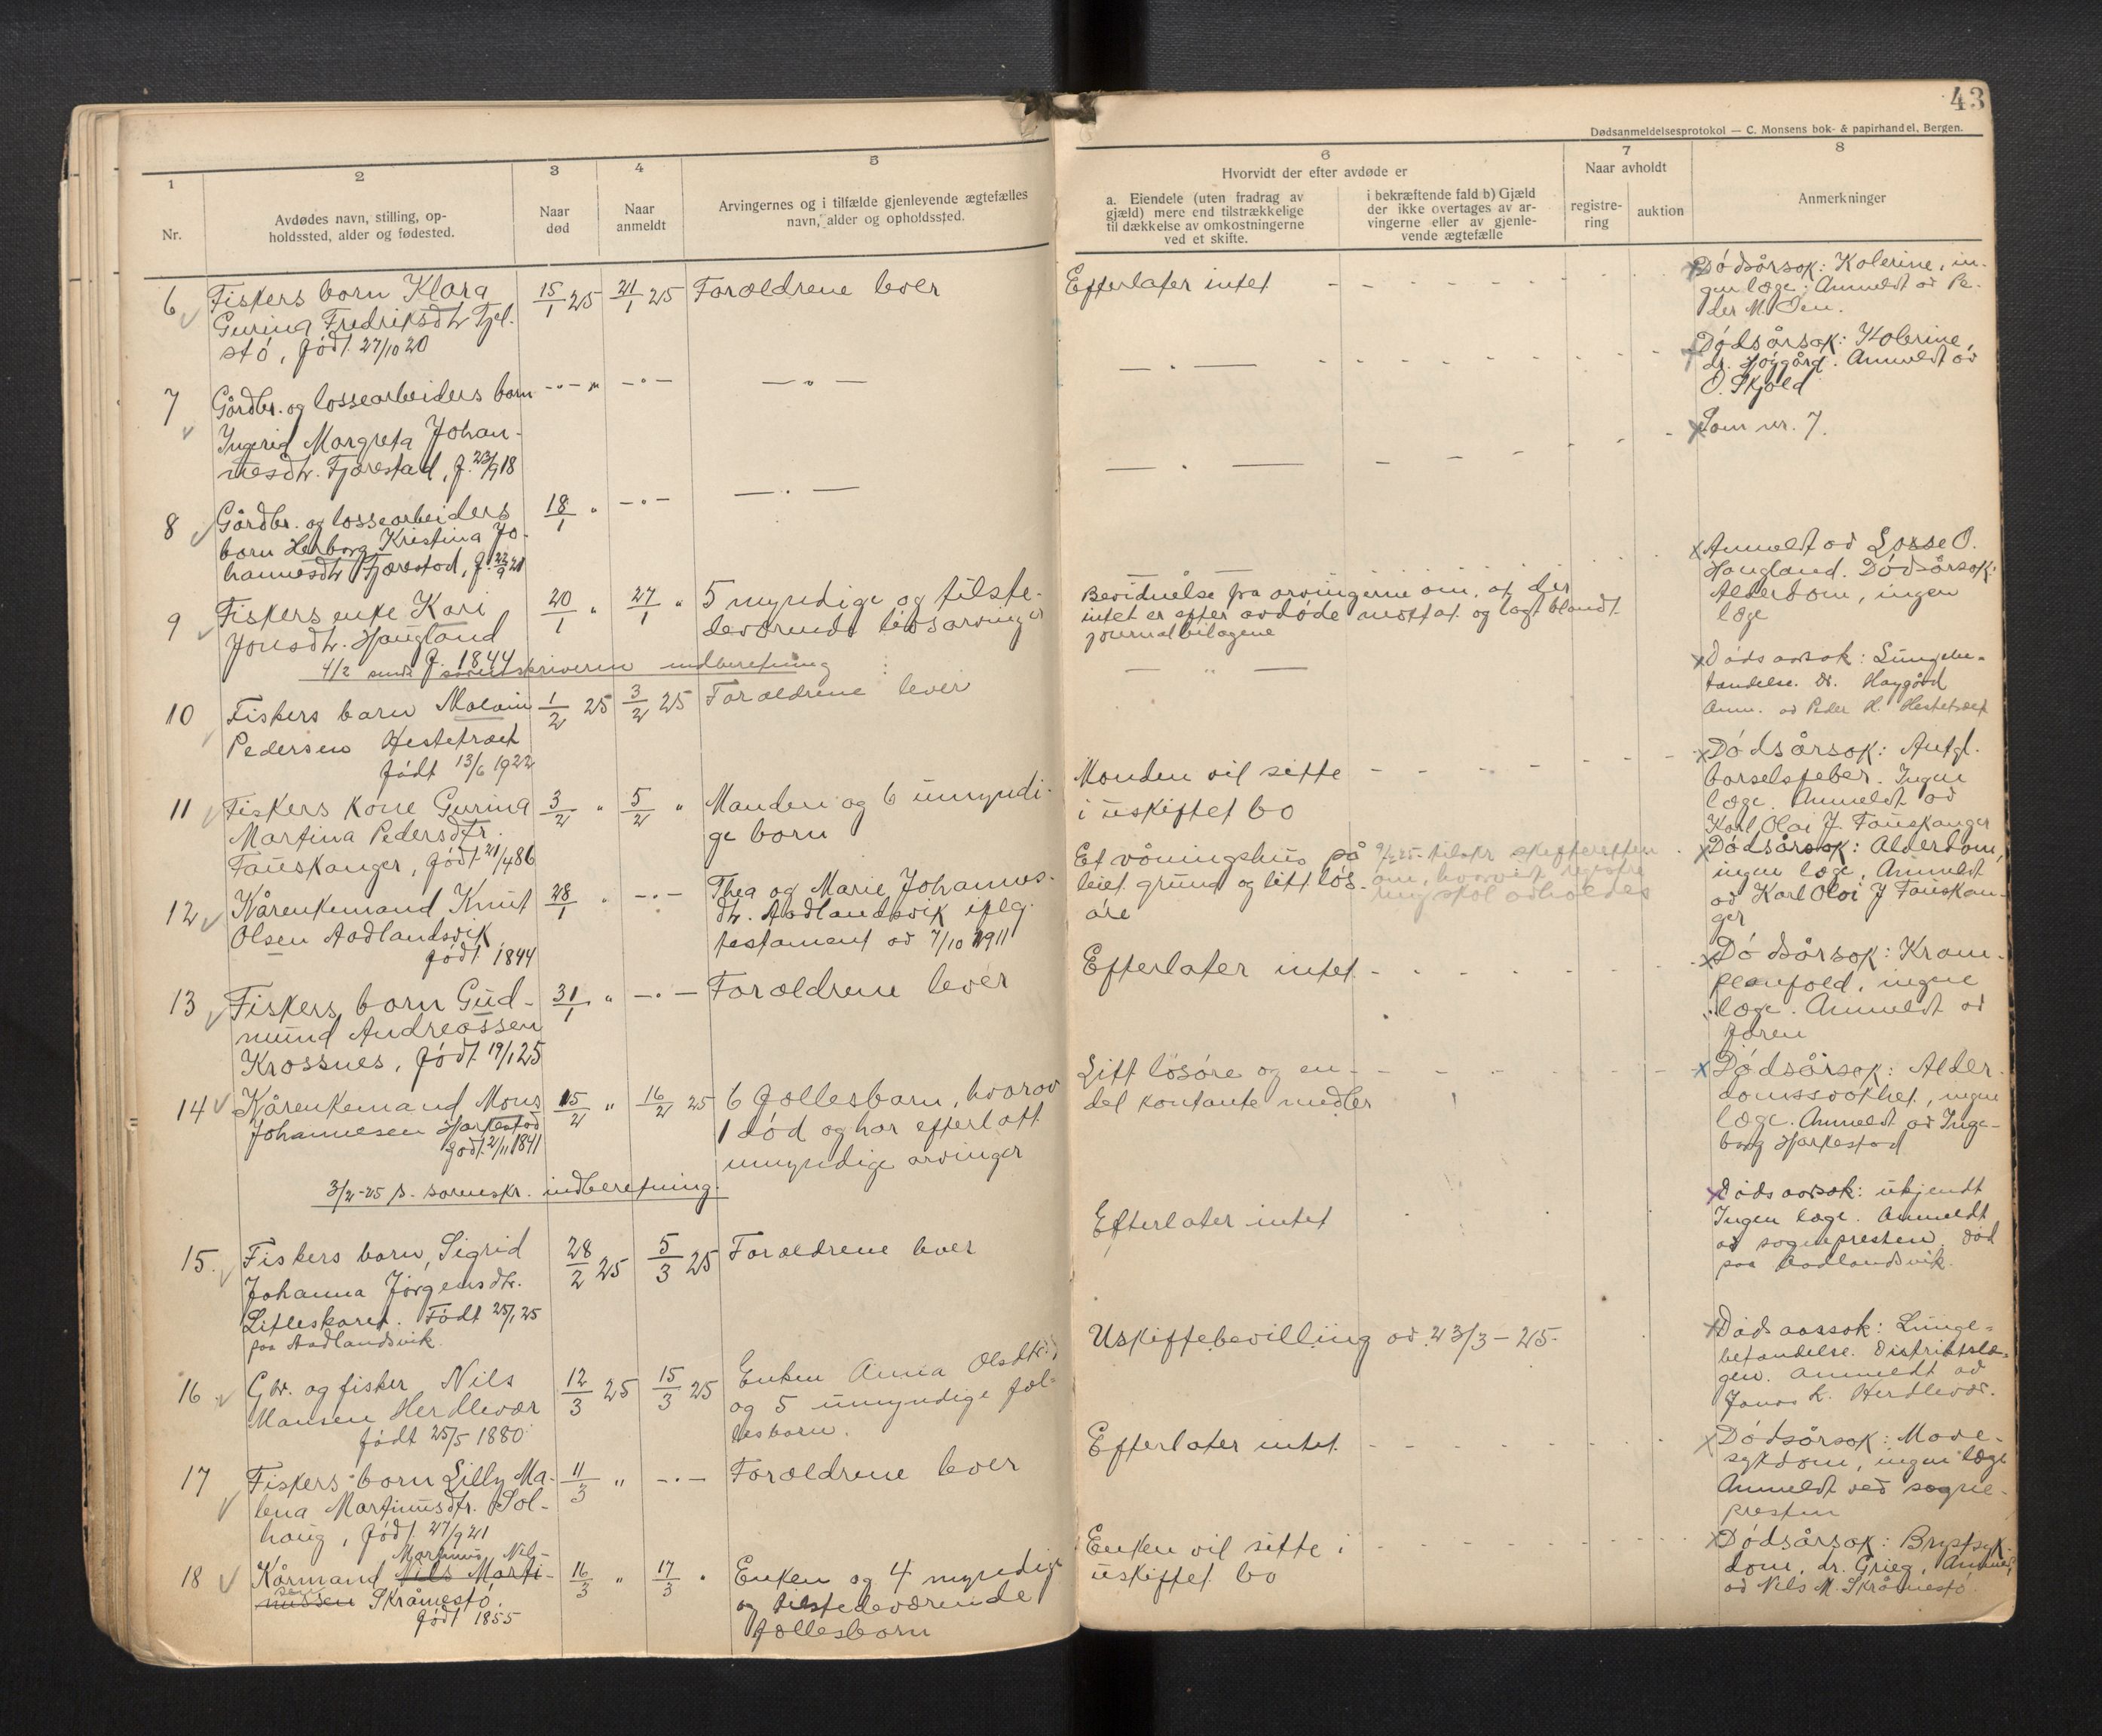 43
Dødsanmeldelsesprotokol — C. Monsens bok- & papirhandel, Bergen.
1
Nr.
2
Avdødes navn, stilling, op-
holdssted, alder og fødested.
3
Naar
død
4
Naar
anmeldt
5
Arvingernes og i tilfælde gjenlevende ægtefælles
navn, alder og opholdssted.
6
Hvorvidt der efter avdøde er
a. Eiendele (uten fradrag av
gjæld) mere end tilstrækkelige
til dækkelse av omkostningerne
ved et skifte.
i bekræftende fald b) Gjæld
der ikke overtages av ar-
vingerne eller av gjenle-
vende ægtefælle
7
Naar avholdt
registre-
ring
auktion
8
Anmerkninger
6
Fiskers barn Klara
Gurina Fredriksdtr Tjel-
stó, født 27/10 20
15/1 25
21/1 25
Foreldrene lever
Efterlater intet
Dódsårsak: Kolerine, in-
gen læge. Anmeldt av Pe-
der M. Óen.
7
Gårdbr. og lossearbeiders barn
Ingerid Margreta Johan-
nesdtr. Fjærestad, f. 23/9 18
Dódsårsak: Kolerine,
dr. Hóygård. Anmeldt av
O. Skjold
8
Gårdbr. og lossearbeiders
barn Herborg Kristina Jo-
hannesdtr Fjærestad, f. 22/9 21
18/1 "
Som nr. 7.
9
Fiskers enke Kari
Jonsdtr. Haugland
f. 1844
20/1 "
27/1 "
5 myndige og tilste-
deværende livsarvinger
Bevidnelse fra arvingerne om, at der
intet er efter avdøde mottat og lagt blandt
journalbilagene
Anmeldt av Lasse O.
Haugland. Dódsårsak:
Alderdom, ingen
læge
4/2 sendt sorenskriveren indberetning
10
Fiskers barn Malvin
Pedersen Hestetræet
født 13/6 1922
1/2 25
3/2 25
Foreldrene lever
Dødsaarsak: Lungebe-
tændelse. Dr. Høygård
Anm. av Peder H. Hestetræet
11
Fiskers kone Gurina
Martina Pedersdtr.
Fauskanger, født 21/4 86
3/2 "
5/2 "
Manden og 6 umyndi-
ge barn
Manden vil sitte
i uskiftet bo
Dódsårsak: Antgl.
barselfeber. Ingen
læge. Anmeldt av
Karl Olai J. Fauskanger
12
Kårenkemand Knut
Olsen Aadlandsvik
født 1844
28/1 "
Thea og Marie Johannes-
dtr. Aadlandsvik iflg.
testament av 7/10 1911
Et våningshus på
leiet grund og litt lós-
óre
9/2 25 tilskr skifteretten
om, hvorvidt registre
ring skal avholdes
Dódsårsak: Alderdom,
ingen læge, Anmeldt
av Karl Olai J Fauskan-
ger
13
Fiskers barn Gud-
mund Andreassen
Krossnes, født 19/1 25
31/1 "
Foreldrene lever
Efterlater intet
Dódsårsak: Kram-
peanfald, ingen
læge. Anmeldt av
faren
14
Kårenkemand Mons
Johannesen Harkestad
født 2/11 1841
15/2 "
16/2 25
6 fællesbarn, hvorav
1 død og har efterlatt
umyndige arvinger
Litt lósóre og en
del kontante midler
Dódsårsak: Alder-
domssvakhet, ingen
læge. Anmeldt av Inge-
borg Harkestad
3/2-25 s. sorenskr. indberetning.
15.
Fiskers barn, Sigrid
Johanna Jörgensdtr.
Litleskaret. Født 25/1 25
paa Aadlandsvik.
28/2 25
5/3 25
Foreldrene lever
Efterlater intet
Dødsaarsak: ukjendt
Ingen læge. Anmeldt
av sognepresten. Død
paa Aadlandsvik.
16
Gbr. og fisker Nils
Mansen Herdlevær
født 25/5 1880
12/3 25
15/3 25
Enken Anna Olsdtr
og 5 umyndige fæl-
lesbarn.
Uskiftebevilling av 23/3-25.
Dødsaarsak: Lunge-
betændelse. Distriktslæ-
gen. Anmeldt av
Jonas L. Herdlevær.
17
Fiskers barn Lilly Ma-
lena Martinusdtr. Sol-
haug, født 27/9 21
11/3 "
Foreldrene lever
Efterlater intet
Dódsårsak: Mave-
sykdom, ingen læge
Anmeldt ved sogne-
presten
18
Martinus Nil-
Kårmand Nils Marti-
sen
nussen Skråmestó.
født 1855
16/3 "
17/3 "
Enken og 4 myndige
og tilstedeværende
fællesbarn
Enken vil sitte i
uskiftet bo
Dódsårsak: Brystsyk-
dom, dr. Grieg, Anmeldt
av Nils M. Skråmestó